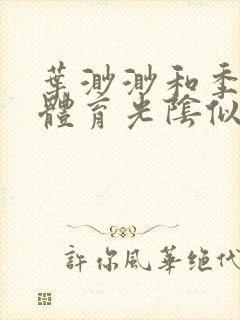 葉渺渺和季
體育光陰似
許你風華绝代